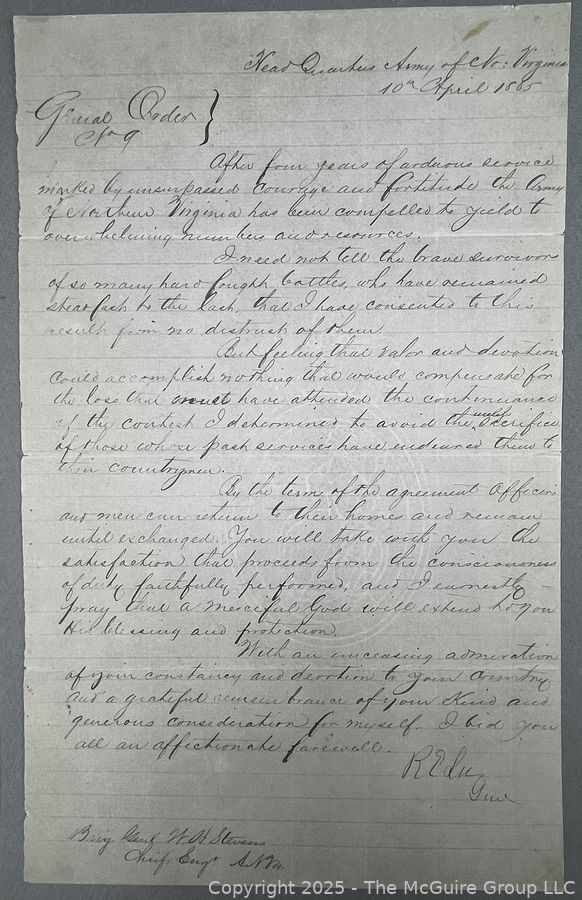 Head Quarters Army of No: Virginia
10th April 1865
General Order
No 9
After four years of arduous service
marked by unsurpassed courage and fortitude the Army
of Northern Virginia has been compelled to yield to
overwhelming numbers and resources.
I need not tell the brave survivors
of so many hard fought battles, who have remained
steadfast to the last, that I have consented to this
result from no distrust of them.
But feeling that valor and devotion
could accomplish nothing that would compensate for
the loss that must have attended the continuance
of the contest I determined to avoid the useless sacrifice
of those whose past services have endeared them to
their countrymen.
By the terms of the agreement Officers
and men can return to their homes and remain
until exchanged. You will take with you the
satisfaction that proceeds from the consciousness
of duty faithfully performed, and I earnestly
pray that a merciful God will extend to you
His blessing and protection.
With an unceasing admiration
of your constancy and devotion to your country
and a grateful remembrance of your kind and
generous consideration for myself. I bid you
all an affectionate farewell.
R E Lee
Genl
Brig Genl W. H. Stevens
Chief Engr A.N.Va.
Copyright 2025 - The McGuire Group LLC